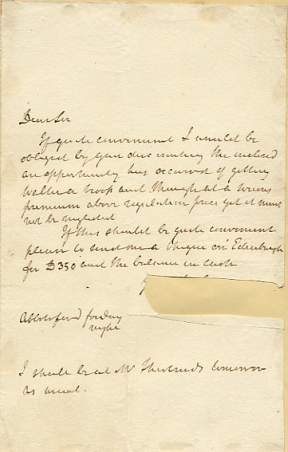 Dear Sir
If quite convenient I would be
obliged by your discounting the inclosed
an opportunity has occurred of getting
Walter a troop and though at a
premium above regulation price yet it must
not be neglected
If this should be quite convenient
please to send me a cheque on Edinburgh
for £350 and the balance in cash
Abbotsford friday
night
I shall be at Mr tomorrow
as usual.